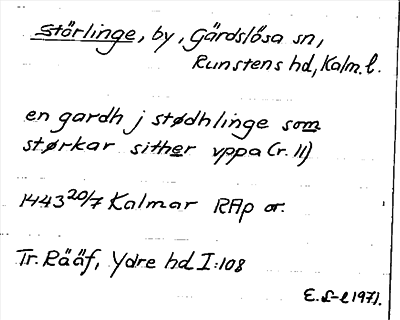 Störlinge, by, Gärdslösa sn,
Runstens hd, Kalm. l.
en gardh j stødhlinge som
størkar sither vppa (r. 11)
1443 20/7 Kalmar RAp or.
Tr. Rääf, Ydre hd I:108
E. S-l 1971.